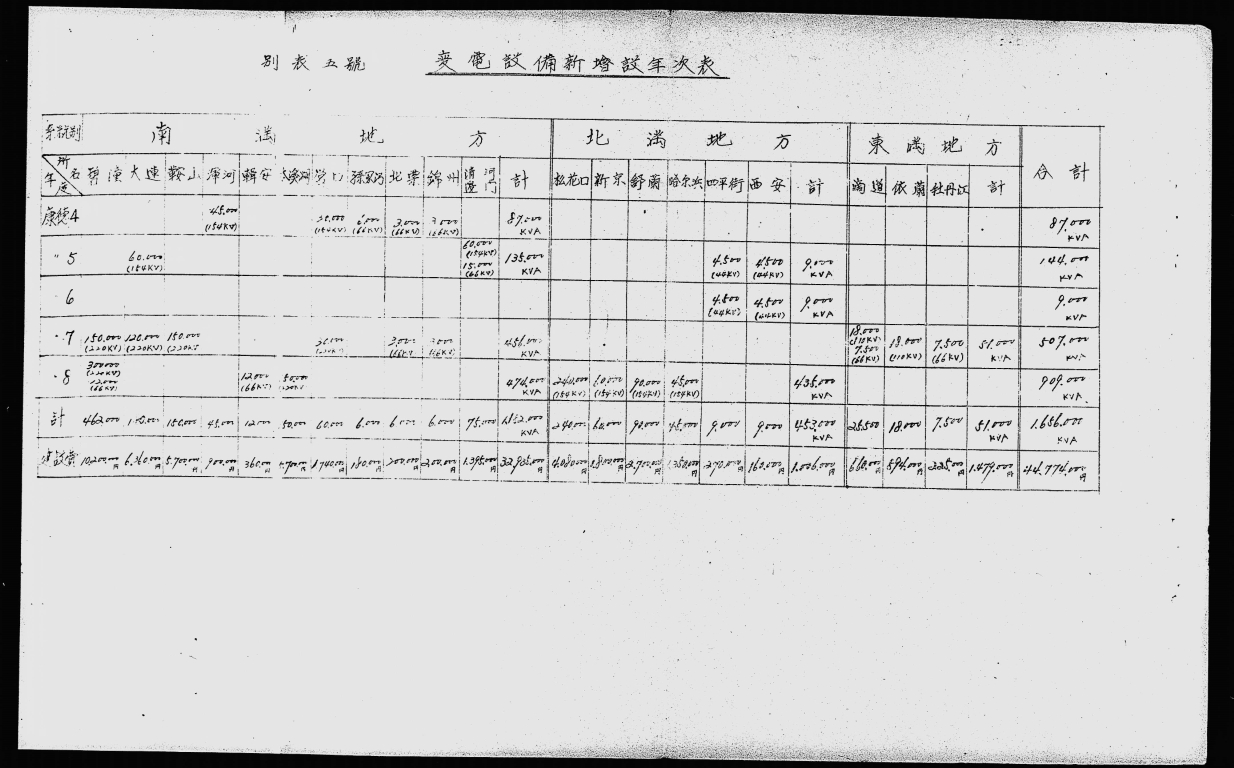 別表五號 變電設備新增設年次表
南滿地方 北滿地方 東滿地方 合計
所名 年度 大連 鞍山 渾河 輯安 北票 錦州 計 松花口 新京 舒蘭 哈尔浜 四平街 西安 計 圖道 依蘭 牡丹江 計
康德4 45,000 (154KV) (154KV) 6,000 (66KV) 3,000 (66KV) 3,000 (66KV) 87,000 KVA 87,000 KVA
〃5 60,000 (154KV) 60,000 (154KV) 15,000 (66KV) 135,000 KVA 4,500 (44KV) 4,500 (44KV) 9,000 KVA 144,000 KVA
6 4,500 (44KV) 4,500 (44KV) 9,000 KVA 9,000 KVA
〃7 150,000 (220KV) 120,000 (220KV) 150,000 (220KV) 3,000 (66KV) 3,000 (66KV) 456,000 KVA 18,000 (110KV) 7,500 (66KV) 18,000 (110KV) 7,500 (66KV) 51,000 KVA 507,000 KVA
〃8 300,000 (220KV) 12,000 (66KV) 12,000 (66KV) 50,000 (220KV) 474,000 KVA 240,000 (154KV) 60,000 (154KV) 90,000 (154KV) 45,000 (154KV) 435,000 KVA 909,000 KVA
計 462,000 150,000 45,000 12,000 50,000 60,000 6,000 6,000 6,000 75,000 1,152,000 KVA 240,000 60,000 90,000 45,000 9,000 9,000 453,000 KVA 25,500 18,000 7,500 51,000 KVA 1,656,000 KVA
建設費 10,200,000円 6,360,000円 5,700,000円 900,000円 360,000円 1,740,000円 180,000円 200,000円 200,000円 1,395,000円 4,080,000円 1,800,000円 2,700,000円 1,350,000円 270,000円 160,000円 660,000円 594,000円 225,000円 1,479,000円 44,774,000円